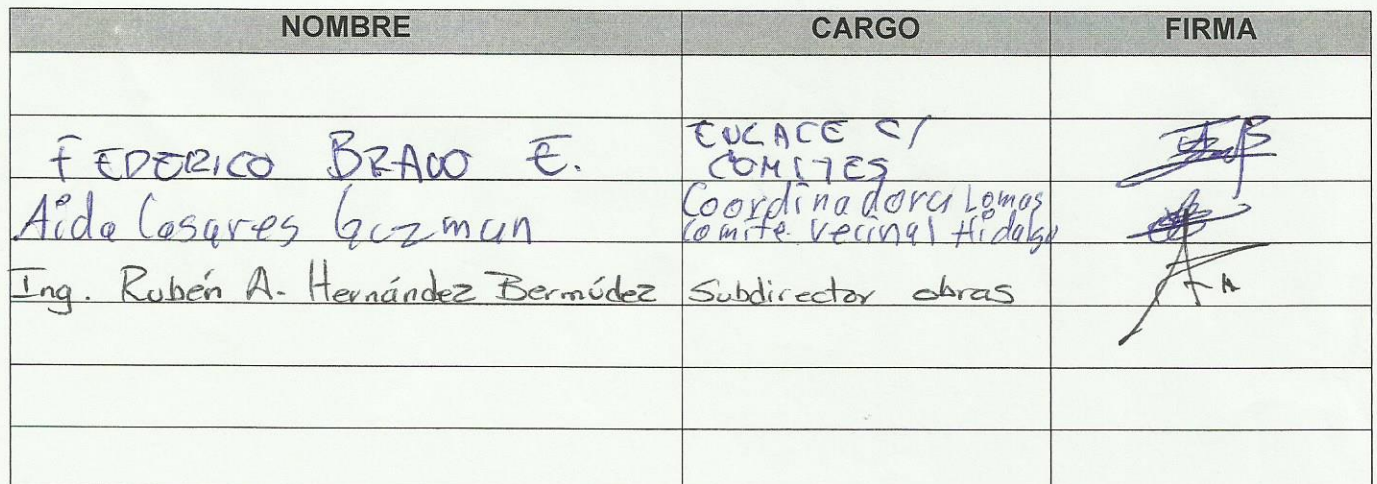 NOMBRE CARGO FIRMA
FEDERICO BRAVO E. ENLACE C/
COMITES
Aida Casares Guzman Coordinadora Lomas
comite vecinal Hidalgo
Ing. Rubén A. Hernández Bermúdez Subdirector obras